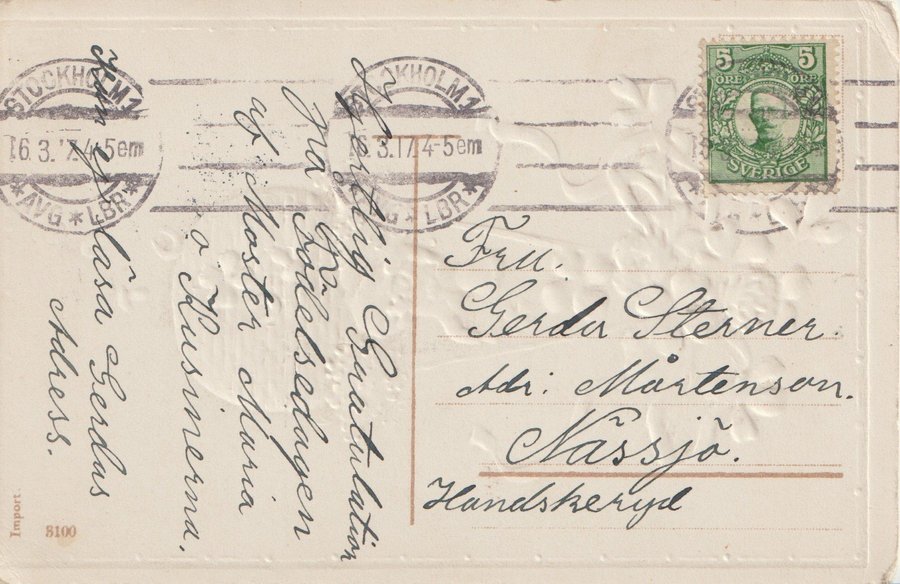 STOCKHOLM 1
16.3.17.4-5 em
* AVG * LBR *
STOCKHOLM 1
16.3.17.4-5 em
AVG * LBR *
5 5
ÖRE ÖRE
SVERIGE
Hjertlig Gratulation
på Födelsedagen
af Moster Maria
o Kusinerna.
läsa Gerdas
Adress.
Fru.
Gerda Sterner.
Adr: Mårtenson.
Nässjö.
Handskeryd
Import.
3100